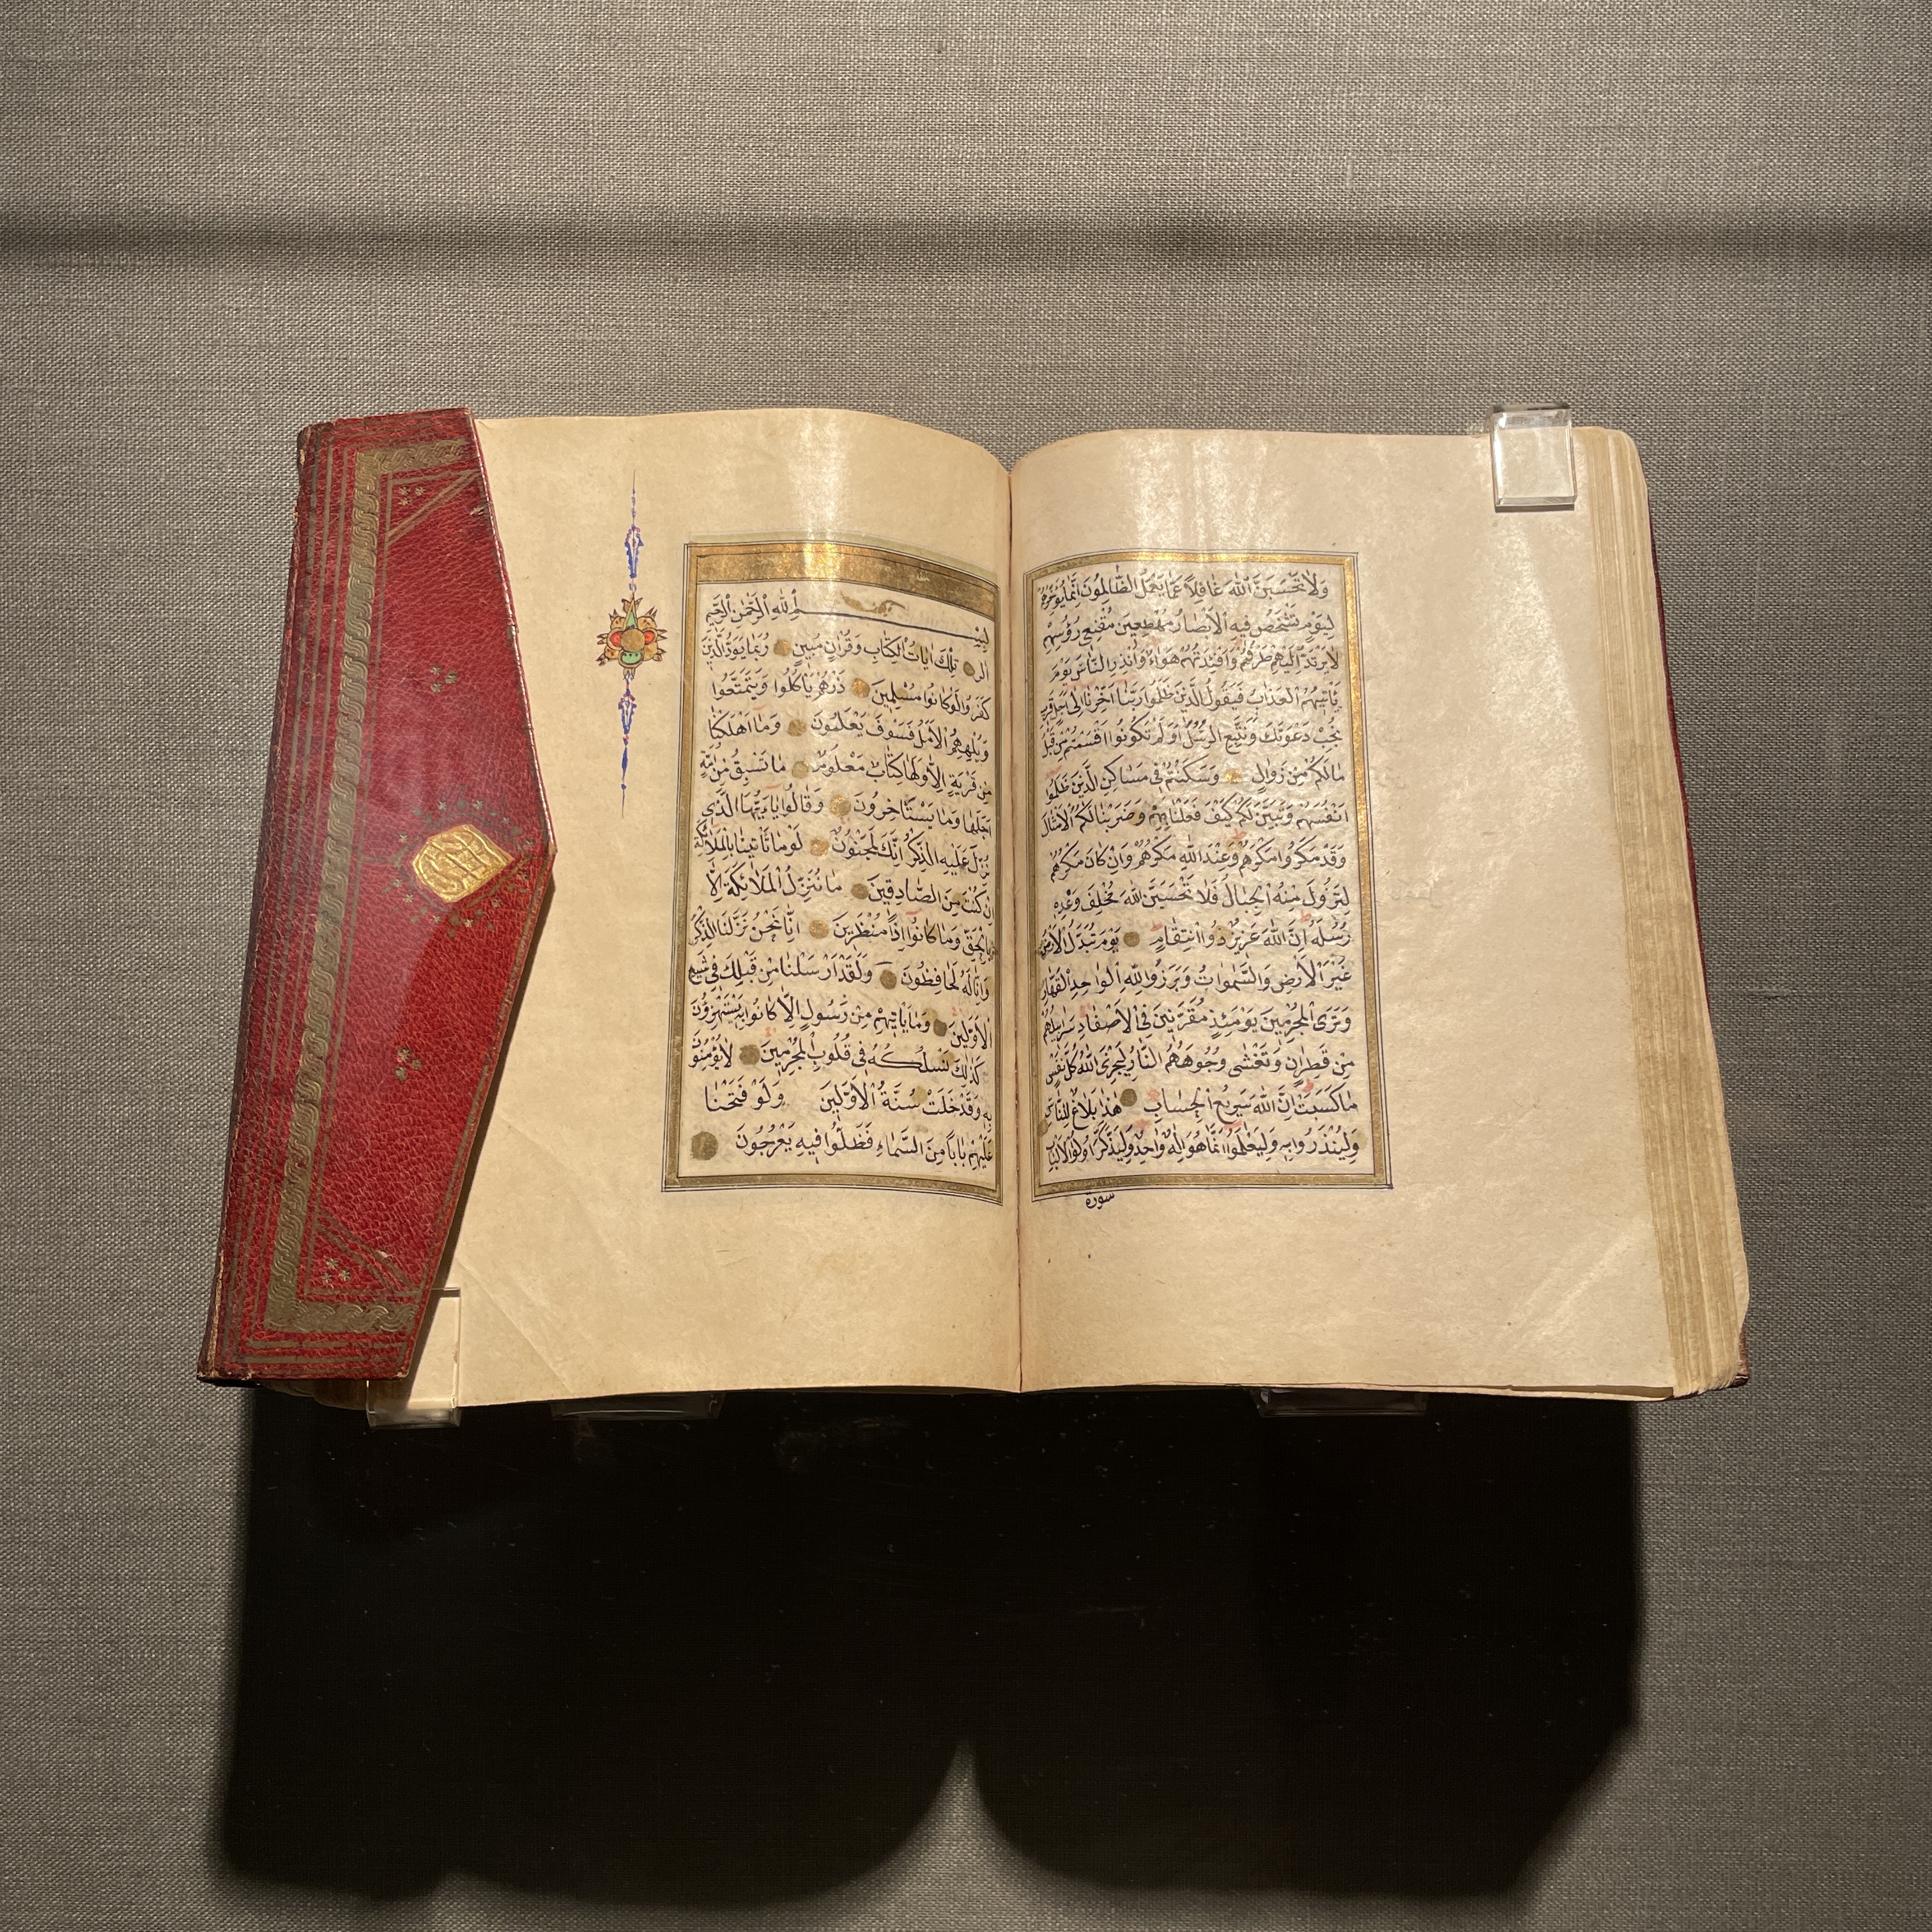 وَلَا تَحْسَبَنَّ اللّٰهَ غَافِلًا عَمَّا يَعْمَلُ الظَّالِمُونَ اِنَّمَا يُؤَخِّرُهُمْ
لِيَوْمٍ تَشْخَصُ فِيهِ الْاَبْصَارُ مُهْطِعِينَ مُقْنِعِى رُؤُسِهِمْ
لَا يَرْتَدُّ اِلَيْهِمْ طَرْفُهُمْ وَاَفْئِدَتُهُمْ هَوَاءٌ وَاَنْذِرِ النَّاسَ يَوْمَ
يَاْتِيهِمُ الْعَذَابُ فَيَقُولُ الَّذِينَ ظَلَمُوا رَبَّنَا اَخِّرْنَا اِلٰى اَجَلٍ قَرِيبٍ
نُجِبْ دَعْوَتَكَ وَنَتَّبِعِ الرُّسُلَ اَوَلَمْ تَكُونُوا اَقْسَمْتُمْ مِنْ قَبْلُ
مَا لَكُمْ مِنْ زَوَالٍ وَسَكَنْتُمْ فِى مَسَاكِنِ الَّذِينَ ظَلَمُوا
اَنْفُسَهُمْ وَتَبَيَّنَ لَكُمْ كَيْفَ فَعَلْنَا بِهِمْ وَضَرَبْنَا لَكُمُ الْاَمْثَالَ
وَقَدْ مَكَرُوا مَكْرَهُمْ وَعِنْدَ اللّٰهِ مَكْرُهُمْ وَاِنْ كَانَ مَكْرُهُمْ
لِتَزُولَ مِنْهُ الْجِبَالُ فَلَا تَحْسَبَنَّ اللّٰهَ مُخْلِفَ وَعْدِهِ
رُسُلَهُ اِنَّ اللّٰهَ عَزِيزٌ ذُو انْتِقَامٍ يَوْمَ تُبَدَّلُ الْاَرْضُ
غَيْرَ الْاَرْضِ وَالسَّمٰوَاتُ وَبَرَزُوا لِلّٰهِ الْوَاحِدِ الْقَهَّارِ
وَتَرَى الْمُجْرِمِينَ يَوْمَئِذٍ مُقَرَّنِينَ فِى الْاَصْفَادِ سَرَابِيلُهُمْ
مِنْ قَطِرَانٍ وَتَغْشٰى وُجُوهَهُمُ النَّارُ لِيَجْزِىَ اللّٰهُ كُلَّ نَفْسٍ
مَا كَسَبَتْ اِنَّ اللّٰهَ سَرِيعُ الْحِسَابِ هٰذَا بَلَاغٌ لِلنَّاسِ
وَلِيُنْذَرُوا بِهِ وَلِيَعْلَمُوا اَنَّمَا هُوَ اِلٰهٌ وَاحِدٌ وَلِيَذَّكَّرَ اُولُو الْاَلْبَابِ
سورة
بِسْمِ اللّٰهِ الرَّحْمٰنِ الرَّحِيمِ
الر تِلْكَ اٰيَاتُ الْكِتَابِ وَقُرْاٰنٍ مُبِينٍ رُبَمَا يَوَدُّ الَّذِينَ
كَفَرُوا لَوْ كَانُوا مُسْلِمِينَ ذَرْهُمْ يَاْكُلُوا وَيَتَمَتَّعُوا
وَيُلْهِهِمُ الْاَمَلُ فَسَوْفَ يَعْلَمُونَ وَمَا اَهْلَكْنَا
مِنْ قَرْيَةٍ اِلَّا وَلَهَا كِتَابٌ مَعْلُومٌ مَا تَسْبِقُ مِنْ اُمَّةٍ
اَجَلَهَا وَمَا يَسْتَاْخِرُونَ وَقَالُوا يَا اَيُّهَا الَّذِى
نُزِّلَ عَلَيْهِ الذِّكْرُ اِنَّكَ لَمَجْنُونٌ لَوْ مَا تَاْتِينَا بِالْمَلَائِكَةِ
اِنْ كُنْتَ مِنَ الصَّادِقِينَ مَا نُنَزِّلُ الْمَلَائِكَةَ اِلَّا
بِالْحَقِّ وَمَا كَانُوا اِذًا مُنْظَرِينَ اِنَّا نَحْنُ نَزَّلْنَا الذِّكْرَ
وَاِنَّا لَهُ لَحَافِظُونَ وَلَقَدْ اَرْسَلْنَا مِنْ قَبْلِكَ فِى شِيَعِ
الْاَوَّلِينَ وَمَا يَاْتِيهِمْ مِنْ رَسُولٍ اِلَّا كَانُوا بِهِ يَسْتَهْزِؤُنَ
كَذٰلِكَ نَسْلُكُهُ فِى قُلُوبِ الْمُجْرِمِينَ لَا يُؤْمِنُونَ
بِهِ وَقَدْ خَلَتْ سُنَّةُ الْاَوَّلِينَ وَلَوْ فَتَحْنَا
عَلَيْهِمْ بَابًا مِنَ السَّمَاءِ فَظَلُّوا فِيهِ يَعْرُجُونَ